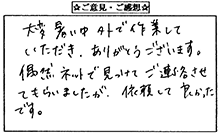 ☆ご意見・ご感想☆
大変暑い中外で作業して
いただき、ありがとうございます。
偶然ネットで見つけてご連絡させ
てもらいましたが、依頼して良かった
です。